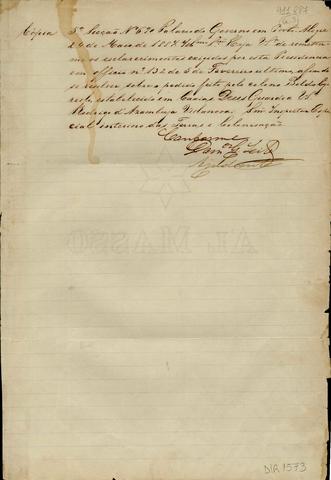 Cópia
5ª Secção Nº 520 Palacio do Governo em Porto Alegre
24 de Maio de 1887. Illmo Snr. Haja Vª de remetter-
me os esclarecimentos exigidos por esta Presidencia
em officio nº 132 de 5 de Fevereiro ultimo, afim de
se resolver sobre o pedido feito pelo colono
estabelecido em Caxias. Deus Guarde a Vª
Rodrigo d'Azambuja Villanova. Snr. Inspector Espe-
cial interino das Terras e Colonisação
Conforme
AL MASSO
DIR 1573